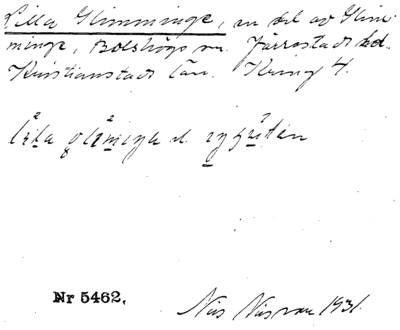 Lilla Glimminge, en del av Glim-
minge, Bolshögs sn. Järrestads hd.
Kristianstads län. Kring 4.
Nr 5462.
Nils Nilsson 1931.